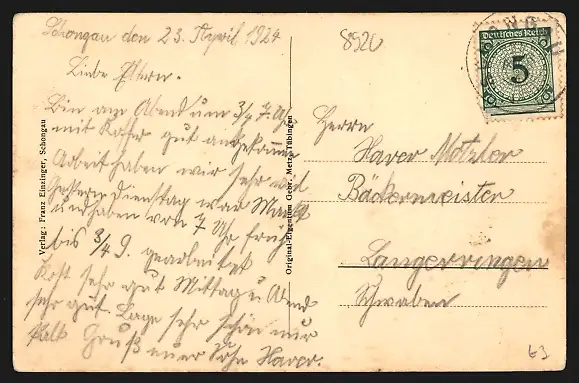 Schongau den 23. April 1924
8920
Liebe Eltern.
Bin am Abend um 3/4 7 Uhr
mit Kofer gut angekomme
Arbeit haben wir sehr viel
Gestern dienstag war Markt
und haben von 7 Uhr früh
bis 3/4 9. gearbeitet
Kost sehr gut Mittag u Abend
sehr gut. Lage sehr schön nur
kalt Gruß euer Sohn Xaver.
Verlag: Franz Einsinger, Schongau
Original-Eigentum Gebr. Metz, Tübingen
SCHONGAU
Deutsches Reich
5
Herrn
Xaver Motzler
Bäckermeister
Langerringen
Schwaben
63